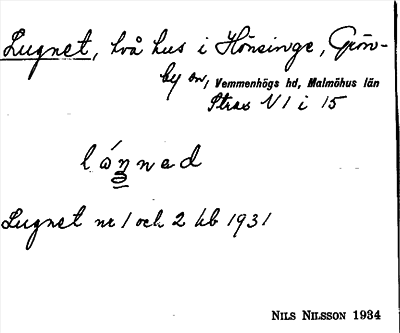 Lugnet, två hus i Hönsinge, Grön-
by sn, Vemmenhögs hd, Malmöhus län
Strax N I i 15
láŋnəd
Lugnet nr 1 och 2 kb 1931
NILS NILSSON 1934